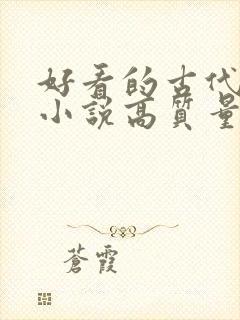 好看的古代
小說高質量
蒼霞